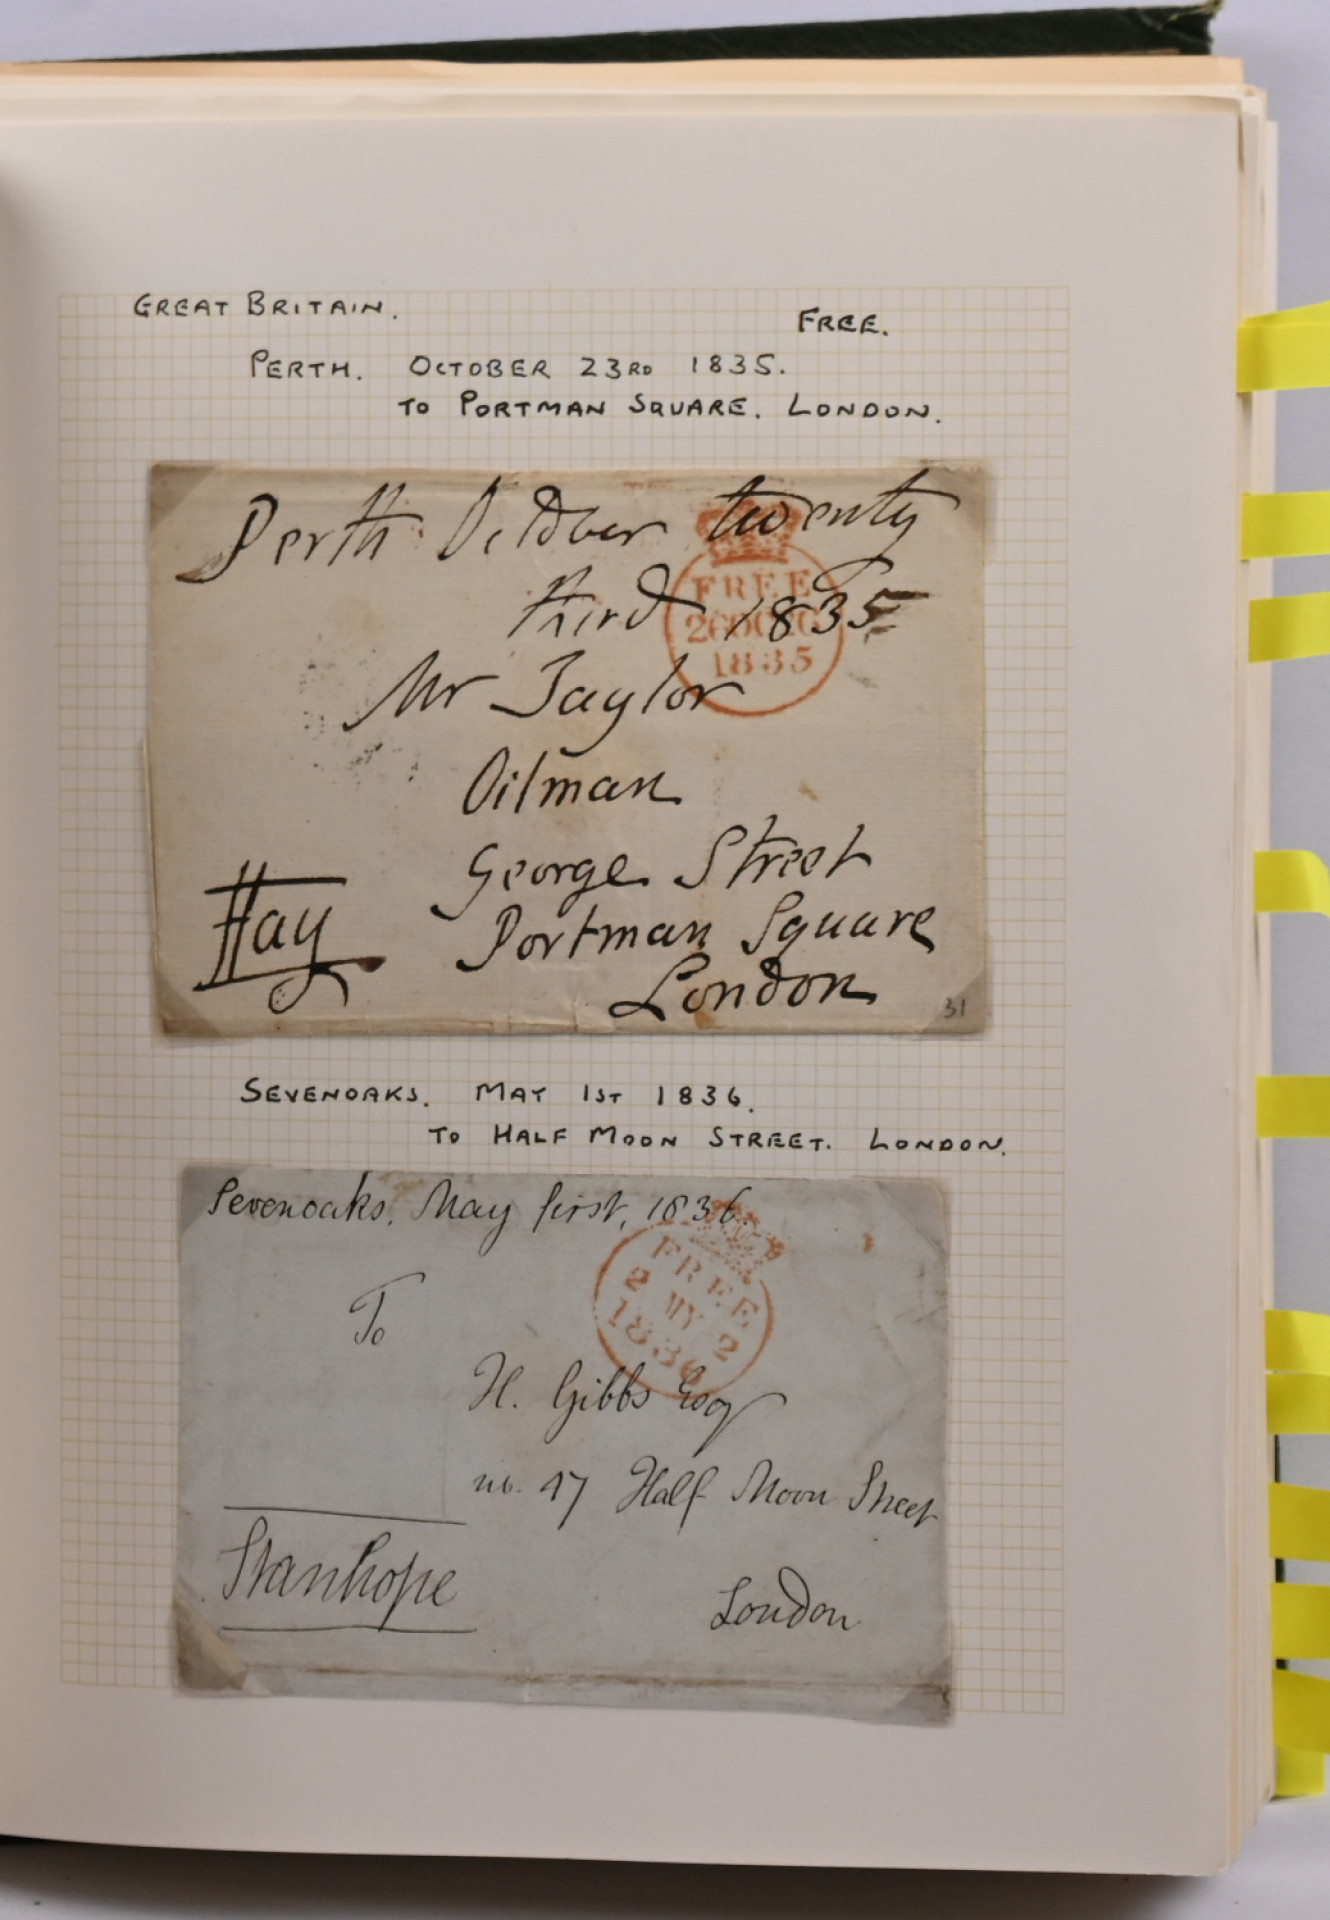 GREAT BRITAIN.
FREE.
PERTH. OCTOBER 23RD 1835.
TO PORTMAN SQUARE. LONDON.
Perth October twenty
third 1835
FREE
26OC26
1835
Mr Taylor
Oilman
George Street
Hay
Portman Square
London
31
SEVENOAKS. MAY 1ST 1836.
TO HALF MOON STREET. LONDON.
Sevenoaks, May first, 1836.
FREE
2 MY 2
1836
To
H. Gibbs Esq
no. 47 Half Moon Street
Stanhope
London